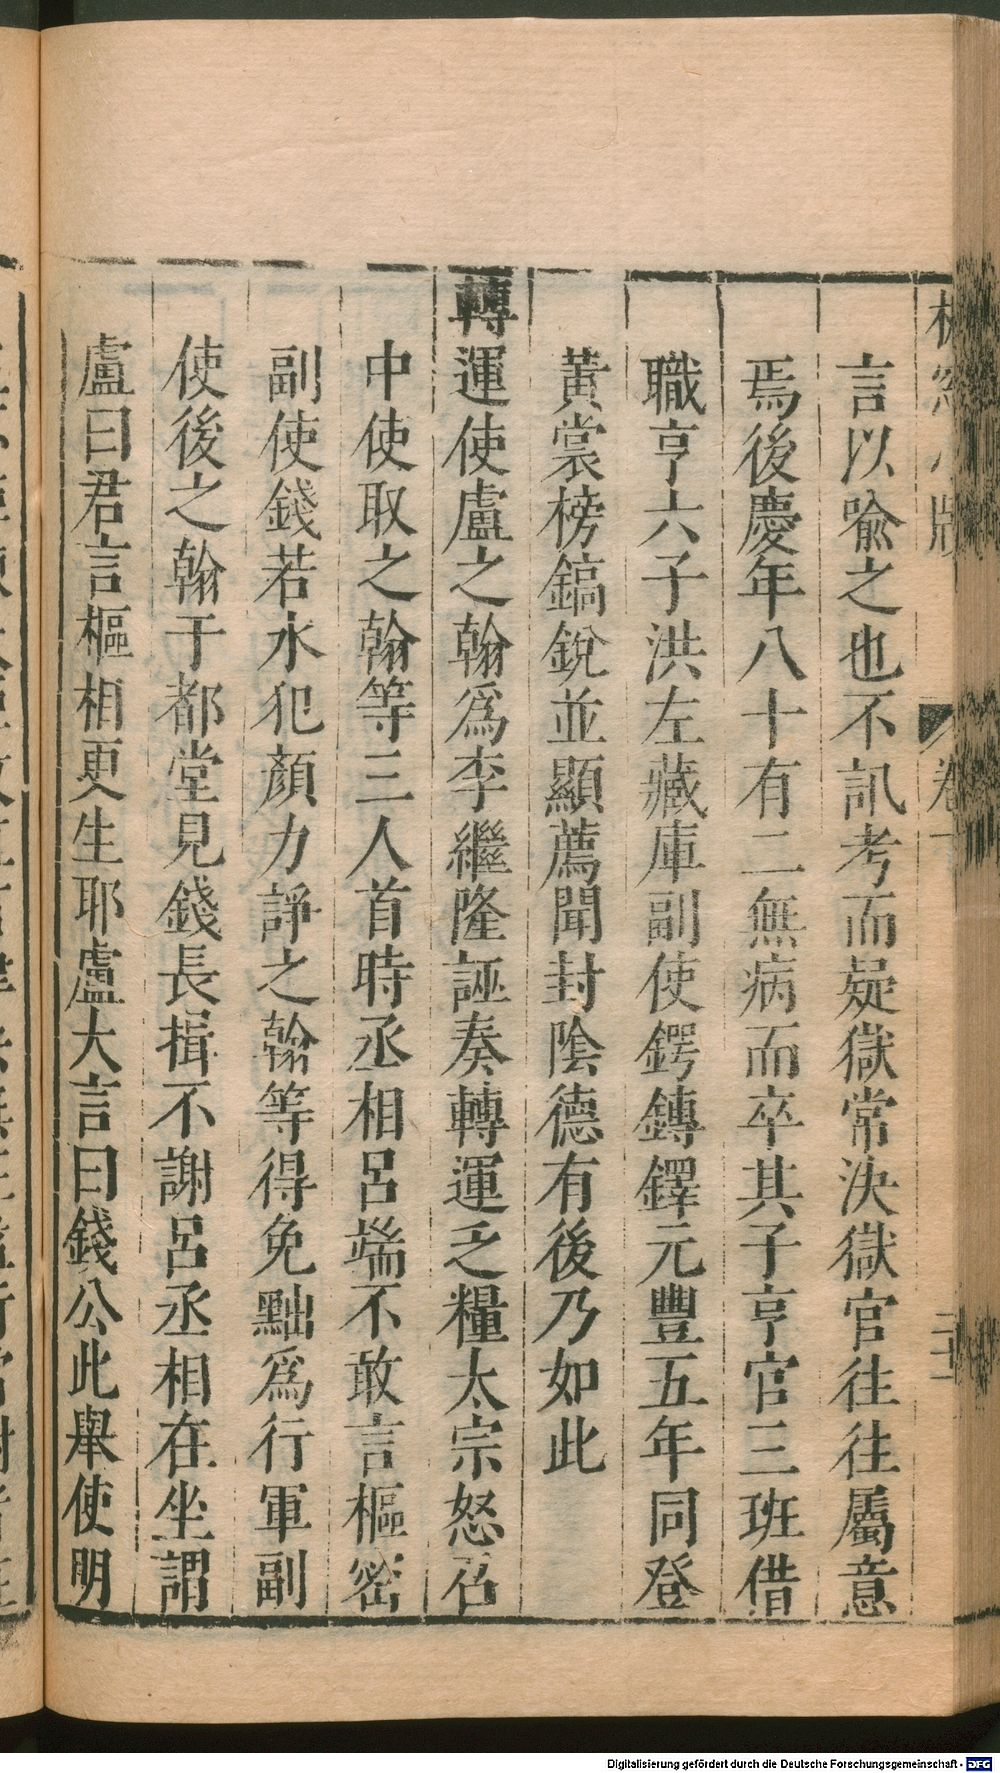 言以喻之也不訊考而疑獄常決獄官往往屬意
焉後慶年八十有二無病而卒其子亨官三班借
職亨六子洪左藏庫副使鍔鏄鐸元豐五年同登
黃裳榜鎬銳並顯薦聞封陰德有後乃如此
轉運使盧之翰爲李繼隆誣奏轉運乏糧太宗怒召
中使取之翰等三人首時丞相呂端不敢言樞密
副使錢若水犯顏力諍之翰等得免黜爲行軍副
使後之翰于都堂見錢長揖不謝呂丞相在坐謂
盧曰君言樞相更生耶盧大言曰錢公此舉使明
Digitalisierung gefördert durch die Deutsche Forschungsgemeinschaft - DFG